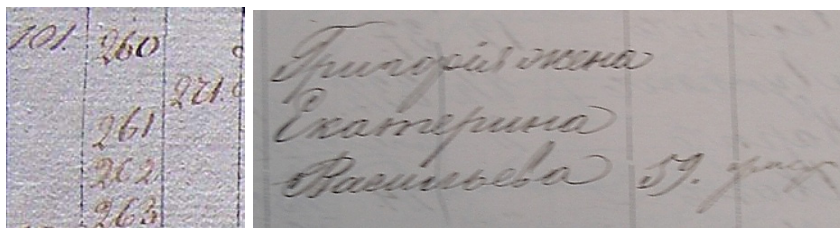 101. 260
271.
261
262
263
Григорія жена
Екатерина
Васильева 59.